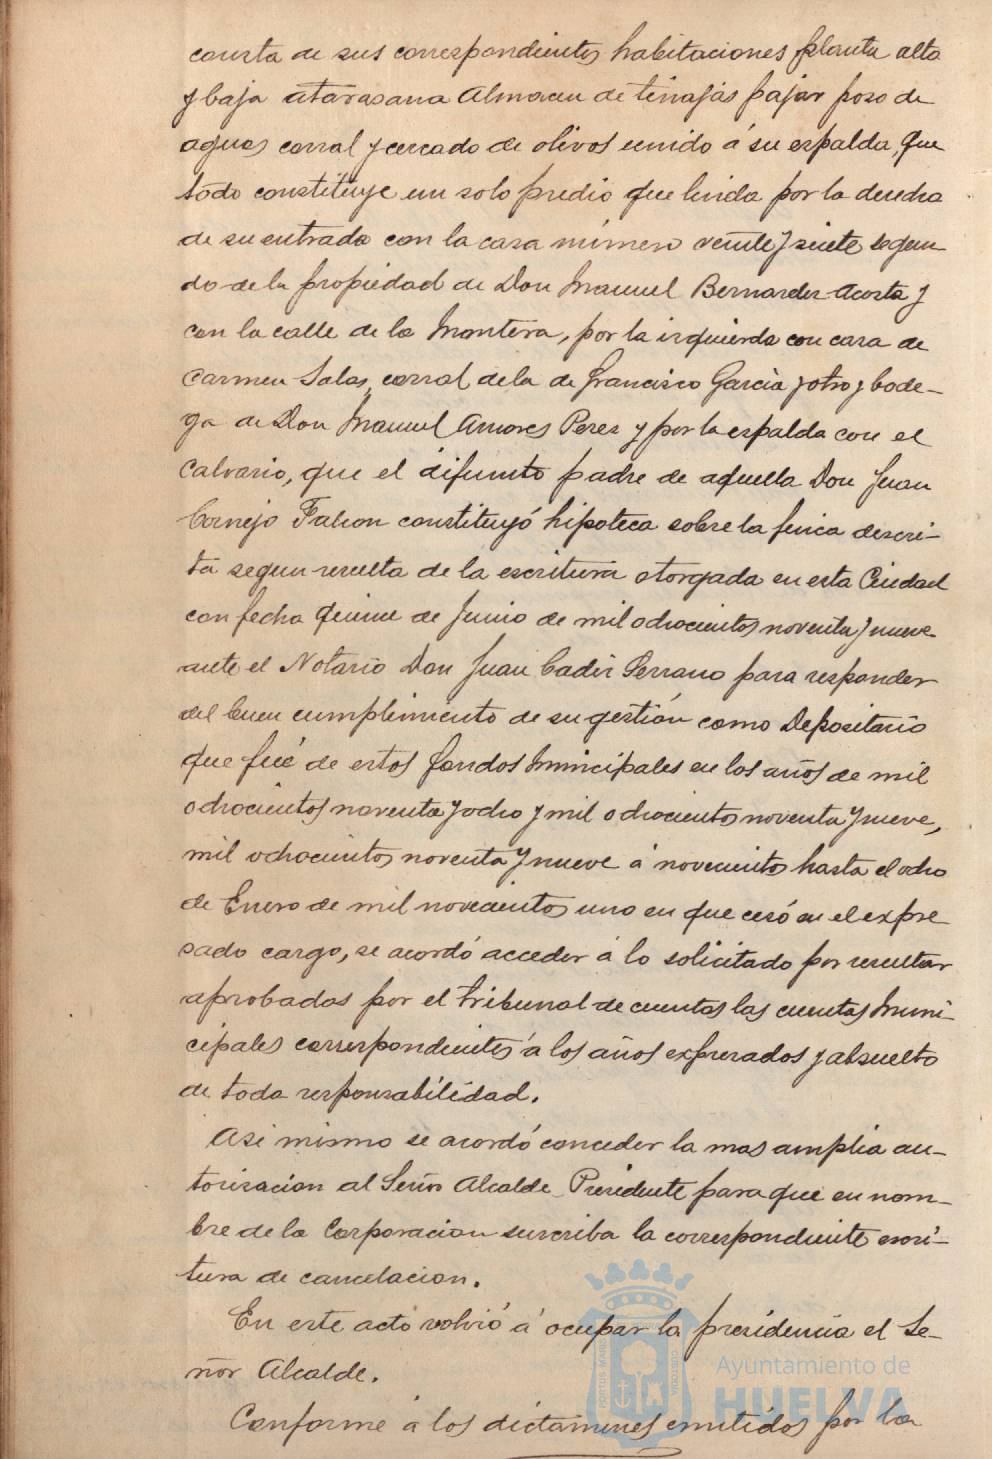 consta de sus correspondientes habitaciones planta alta
y baja atarasana Almacen de tinajas pajar poso de
aguas corral y cercado de olivos unido á su espalda, que
todo constituye un solo predio que linda por la derecha
de su entrada con la casa número veinte y siete segun-
do de la propiedad de Don Manuel Bernardez Acosta y
con la calle de la Montera, por la izquierda con casa de
Carmen Salas, corral de la de Francisco García y otro y bode-
ga de Don Manuel Amores Perez y por la espalda con el
Calvario, que el difunto padre de aquella Don Juan
Cornejo constituyó hipoteca sobre la finca descri-
ta segun resulta de la escritura otorgada en esta Ciudad
con fecha quince de Junio de mil ochocientos noventa y nueve
ante el Notario Don Juan Cadiz Serrano para responder
del buen cumplimiento de su gestión como Depositario
que fué de estos fondos Municipales en los años de mil
ochocientos noventa y ocho y mil ochocientos noventa y nueve,
mil ochocientos noventa y nueve á novecientos hasta el ocho
de Enero de mil novecientos uno en que cesó en el expre
sado cargo, se acordó acceder á lo solicitado por resultar
aprobadas por el Tribunal de cuentas las cuentas Muni-
cipales correspondientes á los años expresados y absuelto
de toda responsabilidad.
Asi mismo se acordó conceder la mas amplia au-
torizacion al Señor Alcalde Presidente para que en nom-
bre de la Corporacion suscriba la correspondiente escri-
tura de cancelacion.
En este acto volvió á ocupar la presidencia el Se-
ñor Alcalde.
Conforme á los dictamenes emitidos por la
Ayuntamiento de
HUELVA